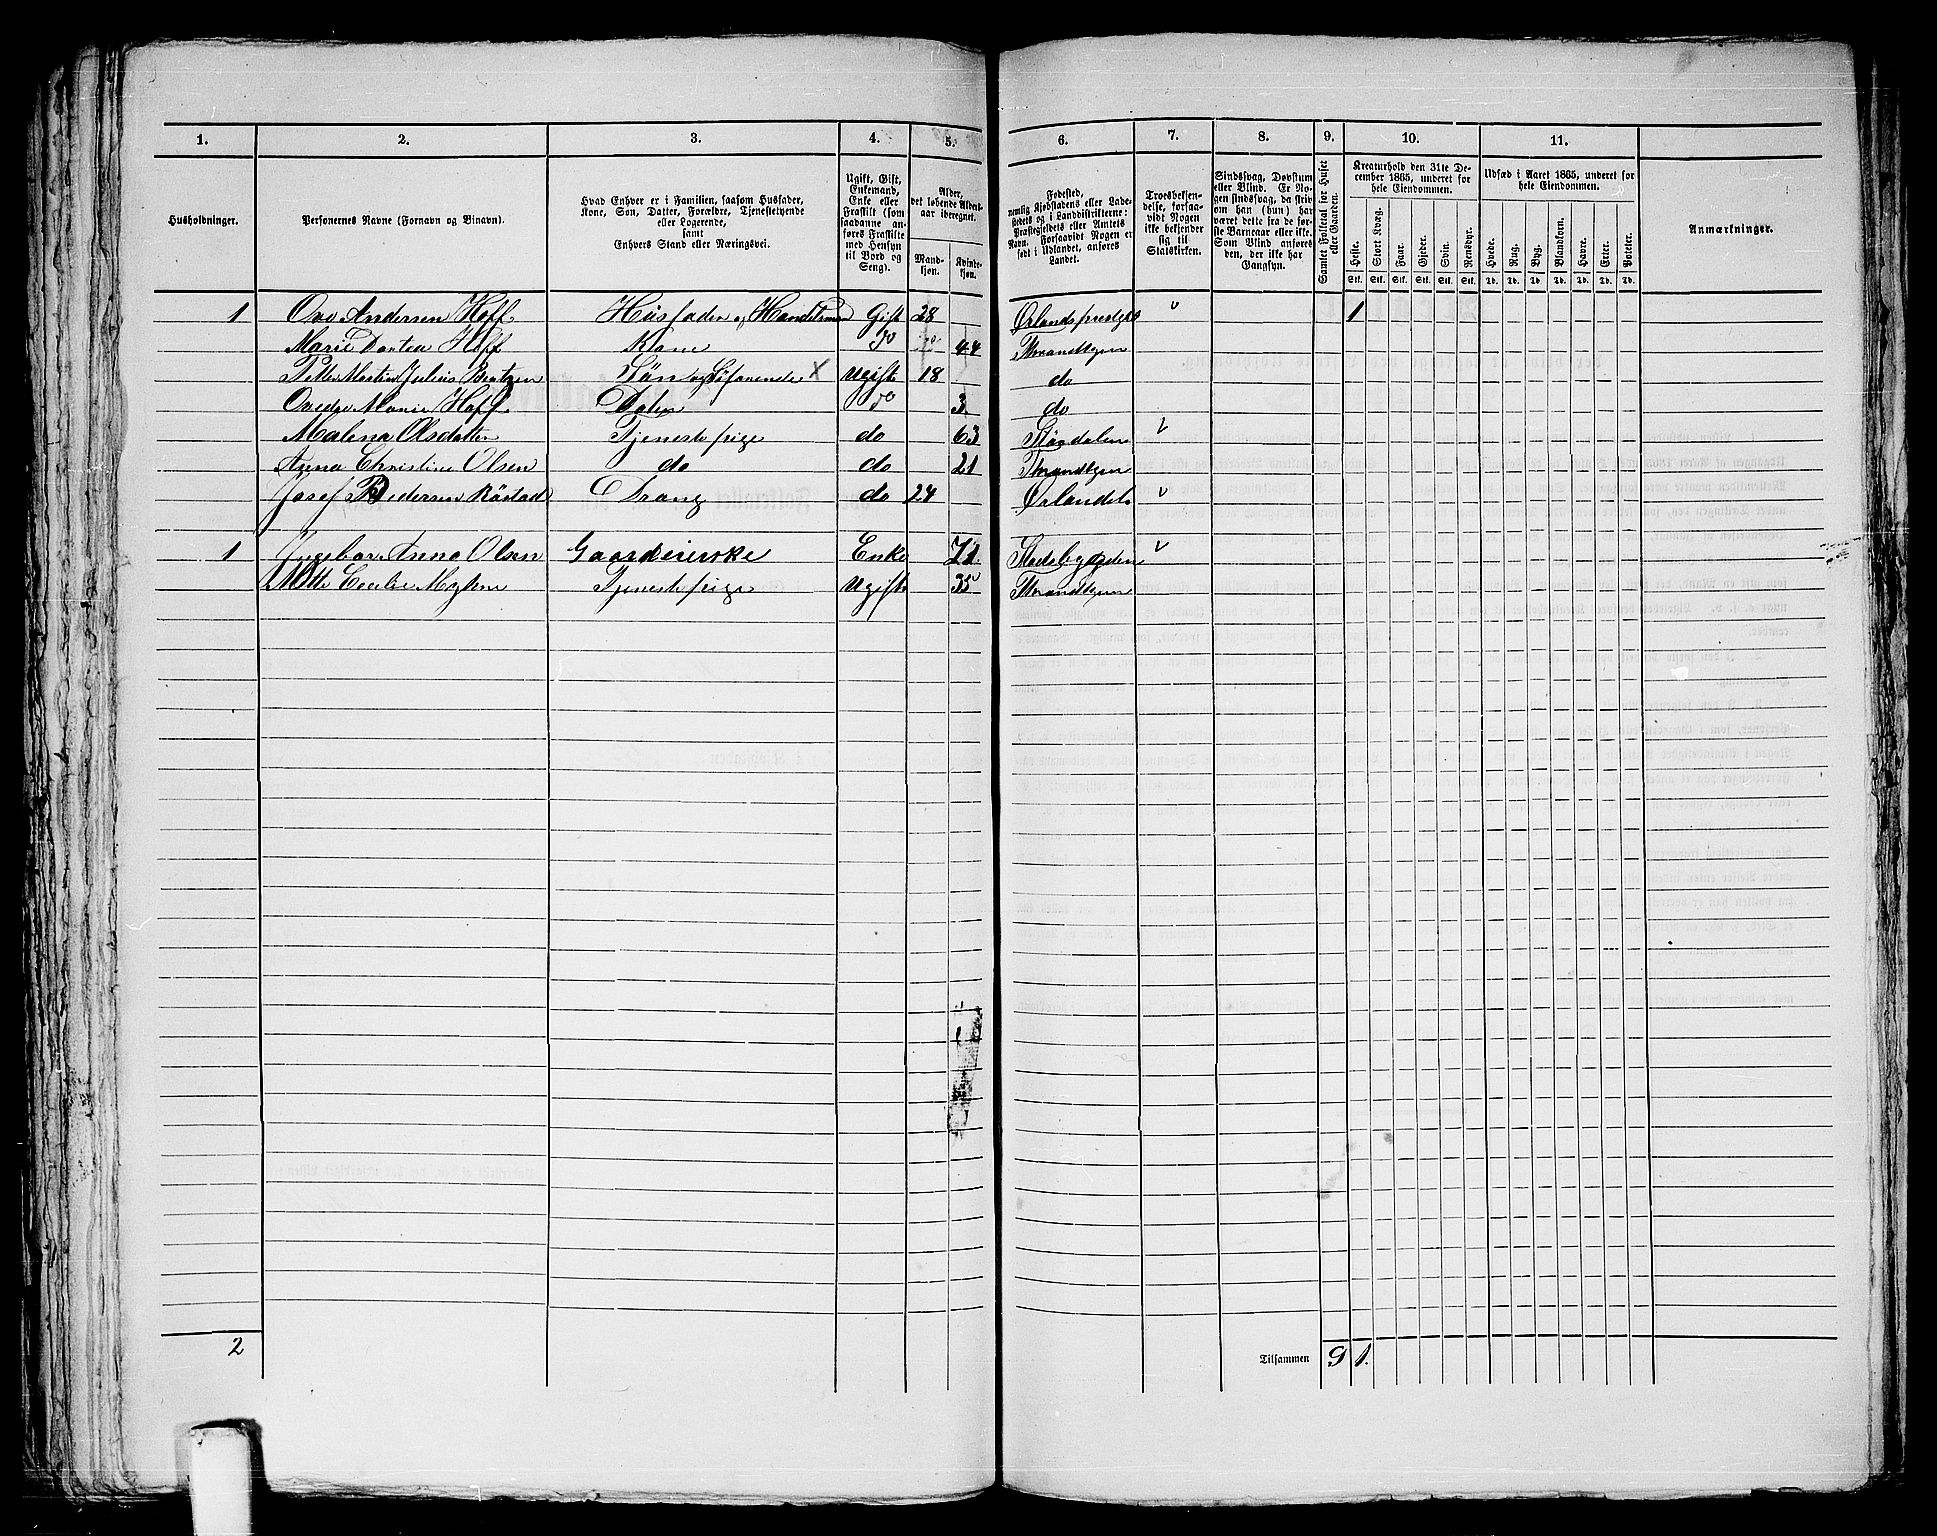 1. 2. 3. 4. 5. 6. 7. 8. 9. 10. 11.
Husholdninger.
Personernes Navne (Fornavn og Binavn).
Hvad Enhver er i Familien, saasom Husfader,
Kone, Søn, Datter, Forældre, Tjenestetyende
eller Logerende,
samt
Enhvers Stand eller Næringsvei.
Ugift, Gift,
Enkemand,
Enke eller
Fraskilt (som
saadanne an-
føres Fraskilte
med Hensyn
til Bord og
Seng).
Alder,
det løbende Alders-
aar iberegnet.
Mand-
kjøn.
Kvinde-
kjøn.
Fødested,
nemlig Kjøbstadens eller Lade-
stedets og i Landdistrikterne:
Præstegjeldets eller Amtets
Navn. Forsaavidt Nogen er
født i Udlandet, anføres
Landet.
Troesbekjen-
delse, forsaa-
vidt Nogen
ikke bekjender
sig til
Statskirken.
Sindssvag, Døvstum
eller Blind. Er No-
gen sindssvag, da skriv
om han (hun) har
været dette fra de før-
ste Barneaar eller ikke.
Som Blind anføres
den, der ikke har
Gangsyn.
Samlet Folketal for Huset
eller Gaarden.
Kreaturhold den 31te De-
cember 1865, underet for
hele Eiendommen.
Heste. Stort Kvæg. Faar. Gjeder. Svin. Rensdyr.
Stk. Stk. Stk. Stk. Stk. Stk.
Udsæd i Aaret 1865, underet for
hele Eiendommen.
Hvede. Rug. Byg. Blandkorn. Havre. Erter. Poteter.
Td. Td. Td. Td. Td. Td. Td.
Anmærkninger.
1 Ove Andersen Hoff Husfader og Handelsmand Gift 28 Ørlandspræstegj 1
Marie Dortea Hoff Kone do 44 Throndhjem
Petter Martin Julius Berntzen Søn og Søfarende X Ugift 18 do
Ovedie Marie Hoff Dater do 3 do
Malena Olsdatter Tjenestepige do 63 Størdalen
Anna Christine Olsen do do 21 Throndhjem
Josef Pedersen Røstad Dreng do 24 Ørlandet
1 Ingebor Anna Olsen Gaardeierske Enke 71 Stadsbygden
Mette Cecilie Myhre Tjenestepige Ugift 35 Throndhjem
2
Tilsammen 9 1.